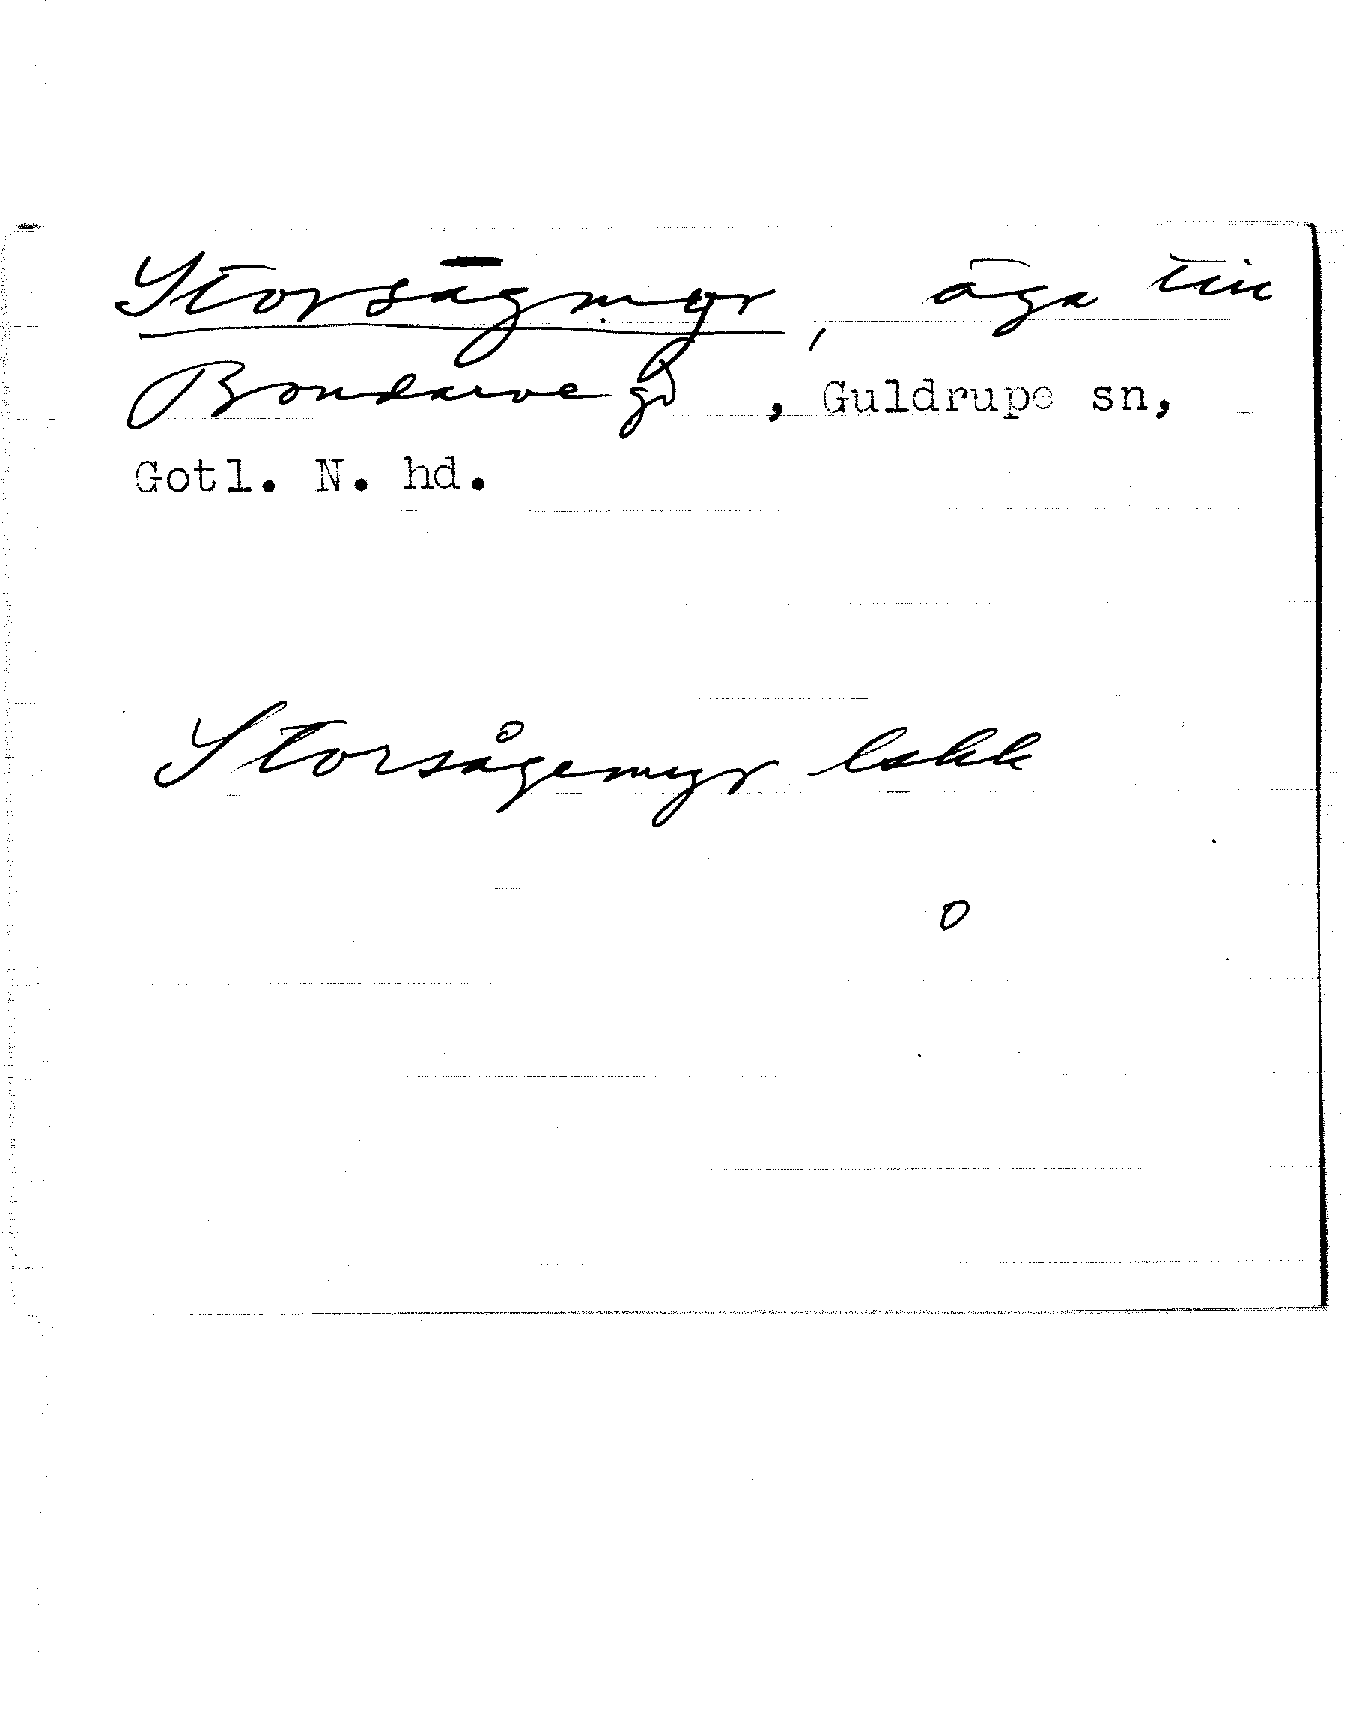 Storsāgmyr, äga till
Bondarve gd, Guldrupe sn,
Gotl. N. hd.
Storsågemyr lakk
0